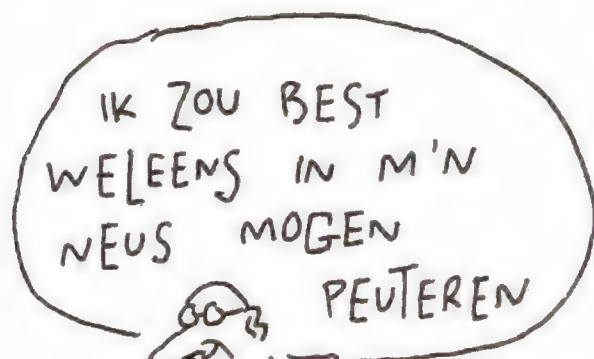 IK ZOU BEST
WELEENS IN M'N
NEUS MOGEN
PEUTEREN